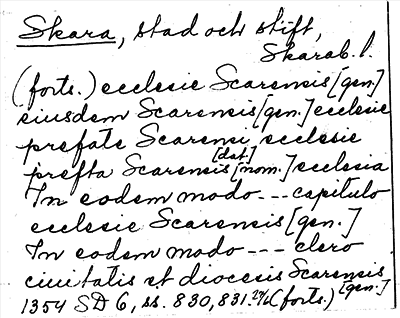 Skara, stad och stift,
Skarab. l.
(forts.) ecclesie Scarensis [gen.]
eiusdem Scarensis [gen.] ecclesie
prefate Scarensi ecclesie
[dat.]
prefta Scarensis [nom.] ecclesia
In eodem modo --- capitulo
ecclesie Scarensis [gen.]
In eodem modo --- clero
ciuitatis et diocesis Scarensis
[gen.]
1354 SD 6, ss. 830, 831. (forts.)